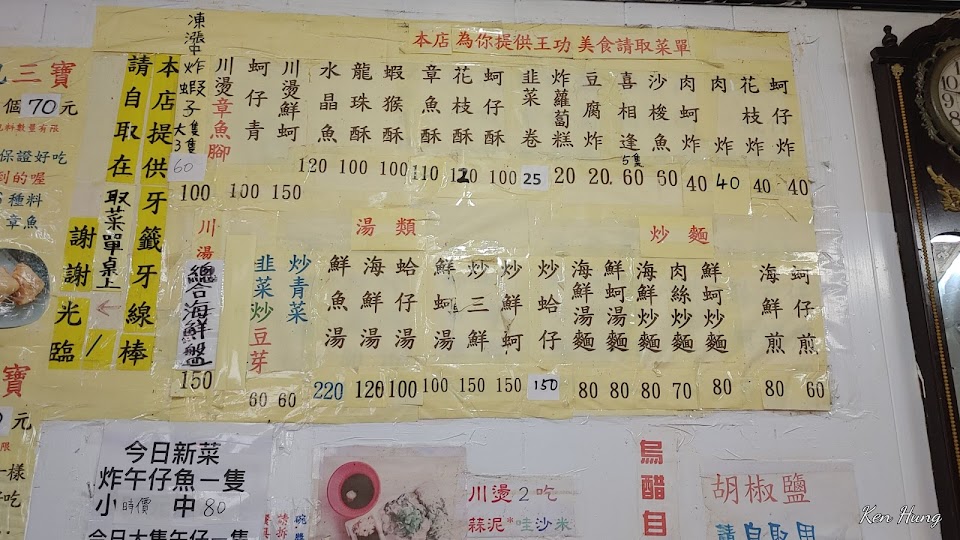 本店為你提供王功美食請取菜單
凍漲中
炸蝦子
大隻3隻
60
川燙章魚腳
100
蚵仔青
100
川燙鮮蚵
150
水晶魚
120
龍珠酥
100
蝦猴酥
100
章魚酥
110
花枝酥
120
蚵仔酥
100
韭菜卷
25
炸蘿蔔糕
20
豆腐炸
20
喜相逢
5隻
60
沙梭魚
60
肉魚炸
40
肉蚵炸
40
花枝炸
40
蚵仔炸
40
川湯
總合海鮮盤
150
韭菜炒豆芽
60
炒青菜
60
湯類
鮮魚湯
220
海鮮湯
120
蛤仔湯
100
鮮蚵湯
100
炒三鮮
150
炒鮮蚵
150
炒蛤仔
150
炒麵
海鮮湯麵
80
鮮蚵湯麵
80
海鮮炒麵
80
肉絲炒麵
70
鮮蚵炒麵
80
海鮮煎
80
蚵仔煎
60
本店提供牙籤牙線棒
請自取在取菜單桌上
←
謝謝光臨/
三寶
個70元
料數量有限
保證好吃
到的喔
種料
章魚
寶
元
樣
吃
今日新菜
炸午仔魚一隻
小時價 中80
今日大隻午仔一隻
川燙2吃
蒜泥*哇沙米
烏醋自
胡椒鹽
請自取用
Ken Hung